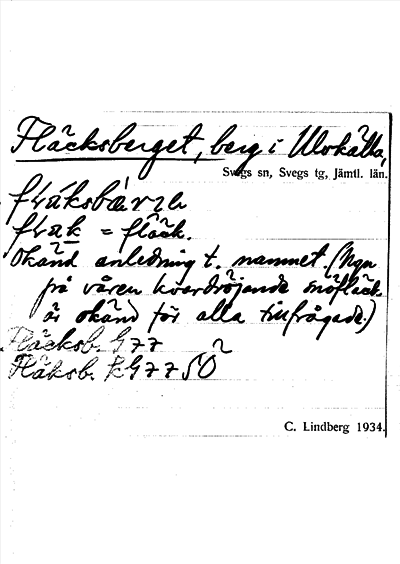 Fläcksberget, berg i Ulvkälla,
Svegs sn, Svegs tg, Jämtl. län.
= fläck.
Okänd anledning t. namnet. (Ngn
på våren kvardröjande snöfläck
är okänd för alla tillfrågade.)
Fläcksb. G 77
Fläksb. k G 77 SÖ
C. Lindberg 1934.